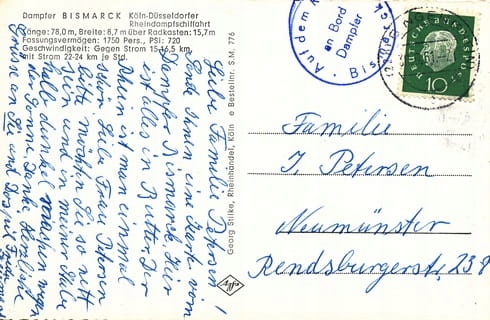 Dampfer BISMARCK Köln-Düsseldorfer
Rheindampfschiffahrt
Länge: 78,0 m, Breite: 8,7 m über Radkasten: 15,7 m
Fassungsvermögen: 1750 Pers., PSI: 720
Geschwindigkeit: Gegen Strom 15-16,5 km,
mit Strom 22-24 km je Std.
an Bord
Dampler
Auf dem
DEUTSCHE BUNDESPOST
10
Familie
J. Petersen
Neumünster
Rendsburgerstr. 23
Georg Stilke, Rheinhändel, Köln e Bestellnr. S.M. 776
Agfa
Liebe Familie Petersen!
Ihnen eine Karte vom
Dampfer Bismarck. Hier
ist alles in Butter. Der
Rhein ist man einmal
schön. Liebe Frau Petersen
bitte möchten Sie so nett
sein und in meiner
dunkel machen wegen
der Sonne. Danke. Herzliche
Grüsse an Sie und